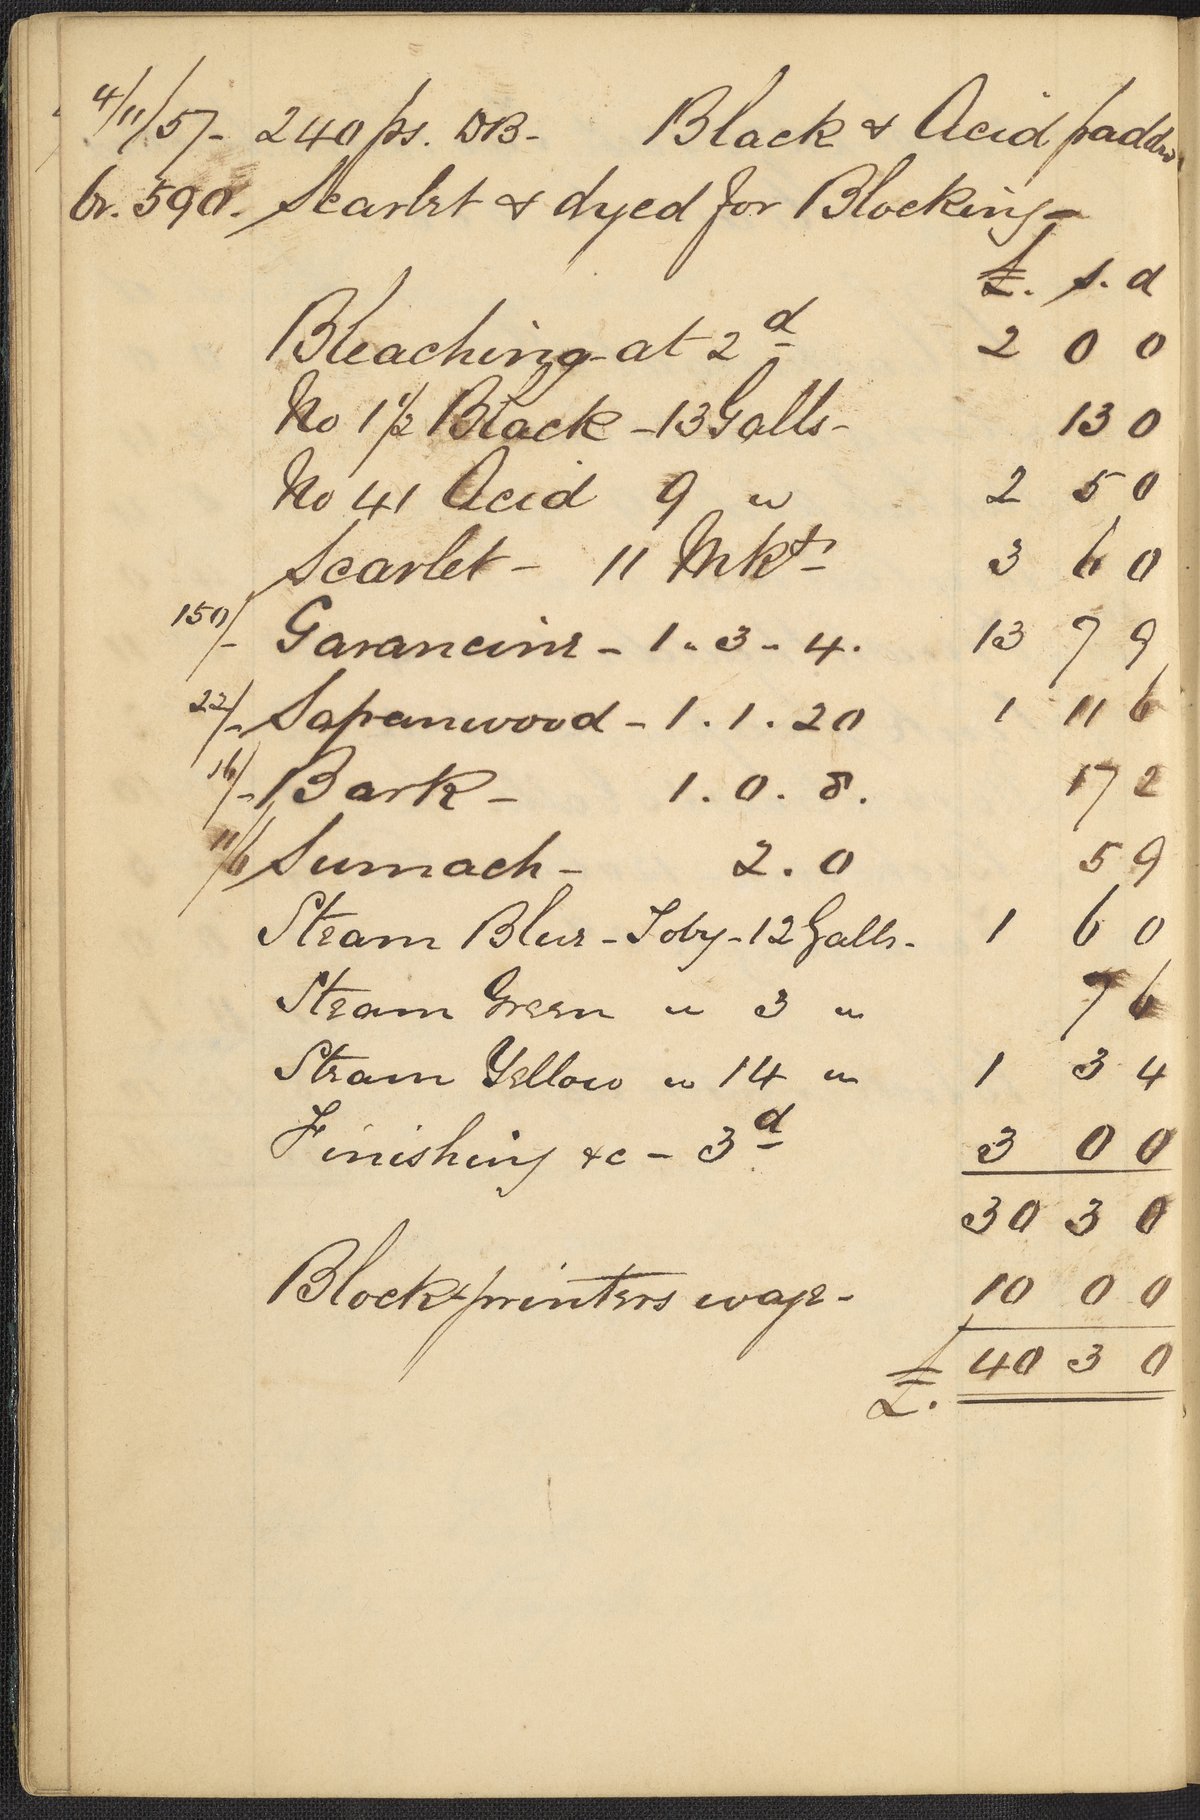 4/11/57- 240 ps. DB- Black & Acid padded
br. 590. Scarlet & dyed for Blocking-
£. s. d
Bleaching-at 2d 2 0 0
No 1½ Black -13 Galls- 13 0
No 41 Acid 9 " 2 5 0
Scarlet - 11 Mkts- 3 6 0
150/- Garancine - 1.3-4. 13 7 9
22/- Sapanwood - 1.1.20 1 11 6
16/- Bark - 1.0.8. 17 2
11/6 Sumach - 2.0 5 9
Steam Blue - Toby - 12 Galls- 1 6 0
Steam Green " 3 " 7 6
Steam Yellow " 14 " 1 3 4
Finishing &c - 3d 3 0 0
30 3 0
Blockprinters wage- 10 0 0
£. 40 3 0